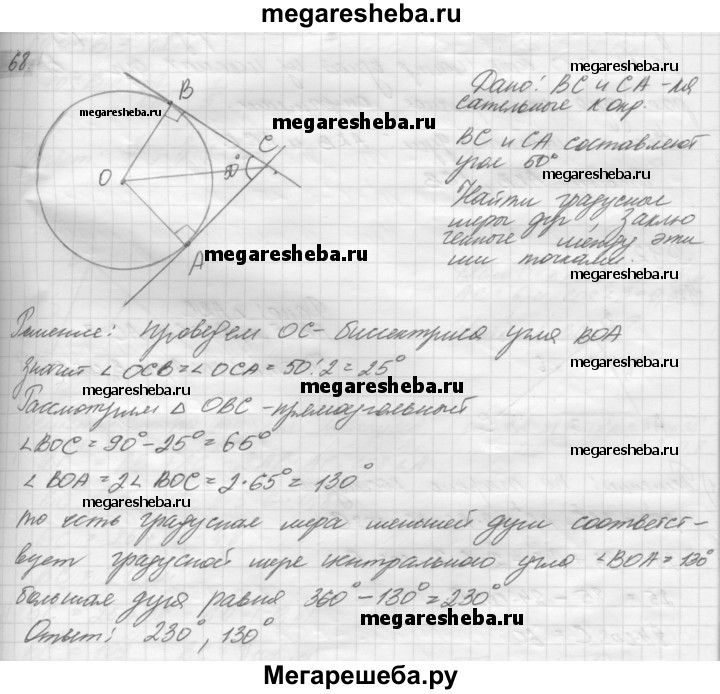 megaresheba.ru
68
B
Дано: BC и CA - ка
megaresheba.ru
сательные к окр.
megaresheba.ru
megaresheba.ru
C
BC и CA составляют
O
50°
угол 50°
Найти градусные
меры дуг, заклю
megaresheba.ru
A
ченные между эти
ми точками.
megaresheba.ru
Решение: проведем OC - биссектриса угла BOA
значит ∠OCB = ∠OCA = 50:2 = 25°
megaresheba.ru
megaresheba.ru
megaresheba.ru
Рассмотрим △ OBC - прямоугольный
∠BOC = 90° - 25° = 65°
megaresheba.ru
∠BOA = 2∠BOC = 2·65° = 130°
megaresheba.ru
megaresheba.ru
то есть градусная мера меньшей дуги соответст-
вует градусной мере центрального угла ∠BOA = 130°
большая дуга равна 360° - 130° = 230°
megaresheba.ru
Ответ: 230°, 130°
Мегарешеба.ру